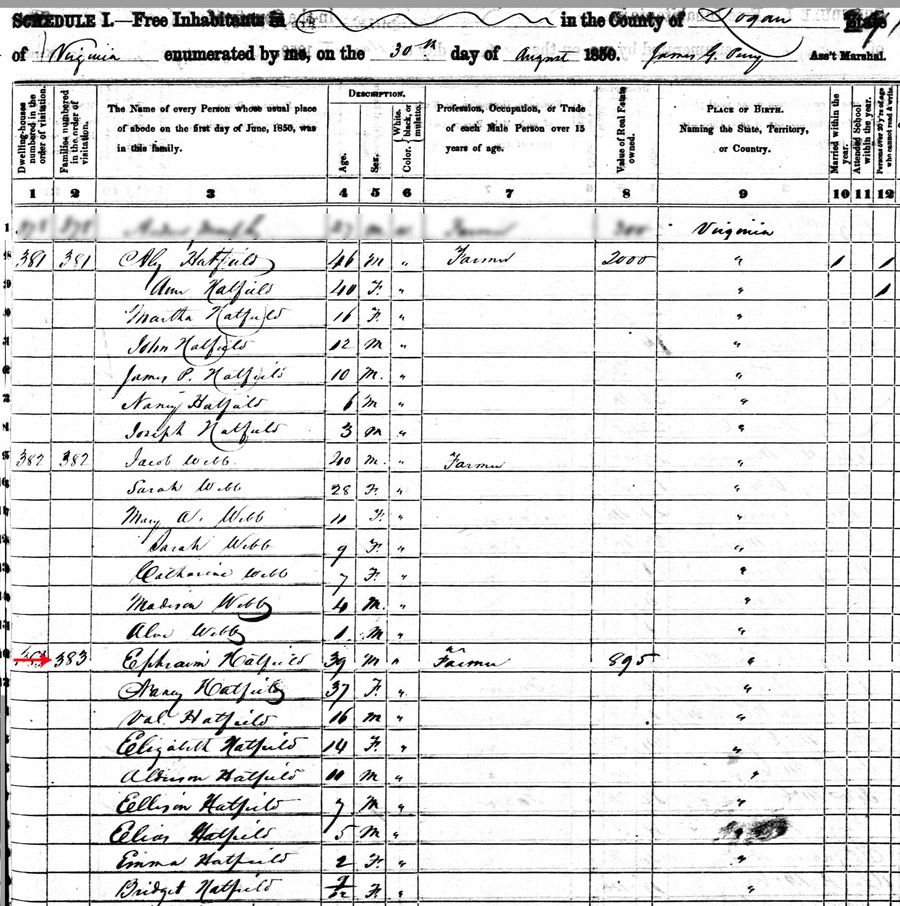 SCHEDULE I.—Free Inhabitants in in the County of Logan State
of Virginia enumerated by me, on the 30th day of August 1850. James G. Perry Ass't Marshal.
Dwelling-houses numbered in the order of visitation.
Families numbered in the order of visitation.
The Name of every Person whose usual place of abode on the first day of June, 1850, was in this family.
DESCRIPTION.
Age.
Sex.
Color. White, black, or mulatto.
Profession, Occupation, or Trade of each Male Person over 15 years of age.
Value of Real Estate owned.
PLACE OF BIRTH. Naming the State, Territory, or Country.
Married within the year.
Attended School within the year.
Persons over 20 y'rs of age who cannot read & write.
1 2 3 4 5 6 7 8 9 10 11 12
Virginia
381 381 Hatfield 46 M " Farmer 2000 " / /
Ann Hatfield 40 F. " " /
Martha Hatfield 16 F. " "
John Hatfield 12 M " "
James P. Hatfield 10 M. " "
Nancy Hatfield 6 M " "
Joseph Hatfield 3 M " "
382 382 Jacob Webb M. " Farmer "
Sarah Webb 28 F. " "
Mary A. Webb 11 F. " "
Sarah Webb 9 F. " "
Catharine Webb 7 F. " "
Madison Webb 4 M. " "
Webb 1 M "
383 383 Ephraim Hatfield 39 M " Farmer 895 "
Nancy Hatfield 37 F. " "
Val. Hatfield 16 M " "
Elizabeth Hatfield 14 F. " "
Hatfield 11 M " "
Ellison Hatfield 7 M. " "
Elias Hatfield 5 M " "
Emma Hatfield 2 F. " "
Bridget Hatfield F. " "